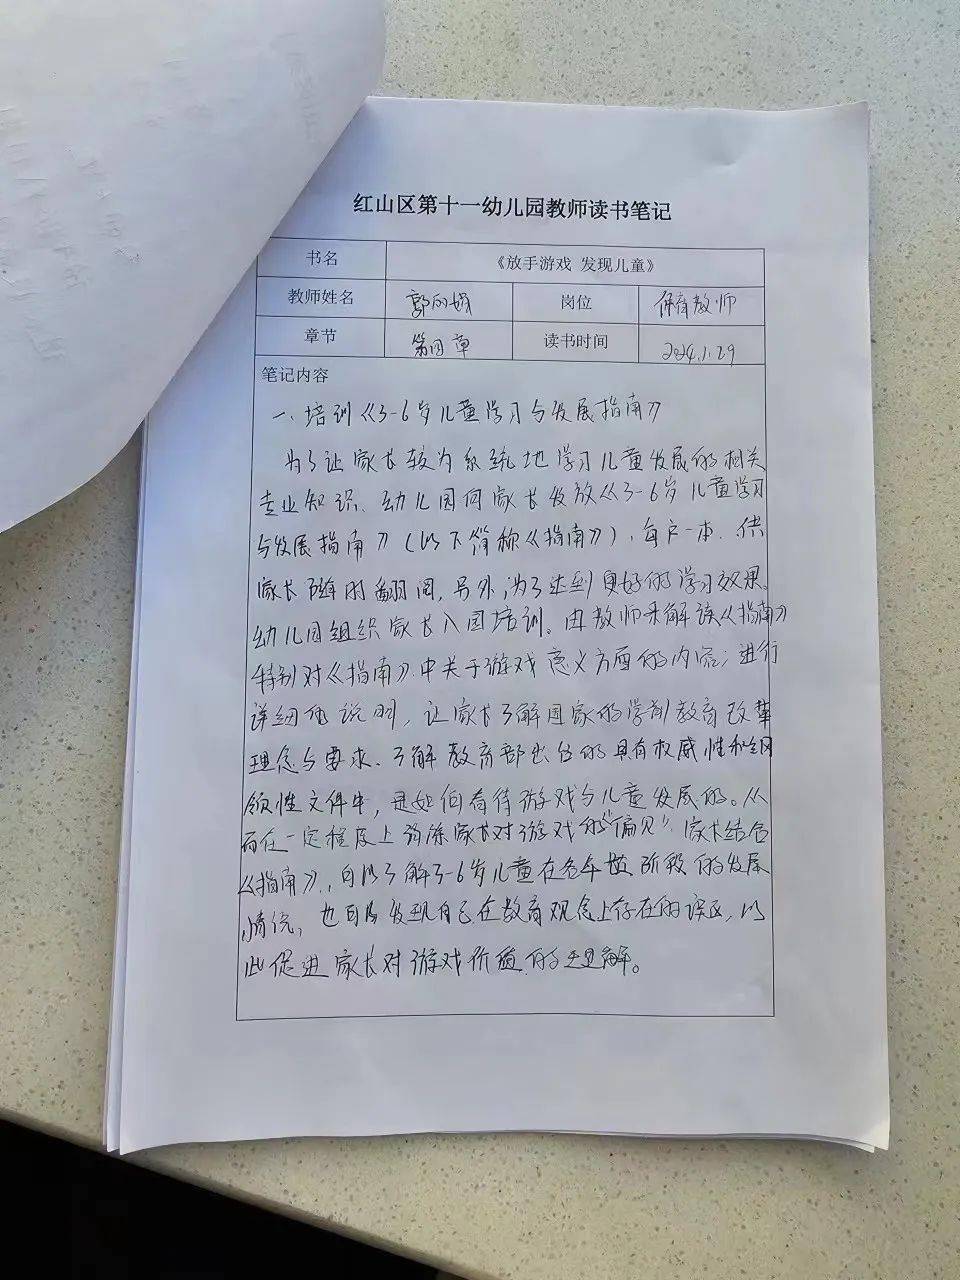 红山区第十一幼儿园教师读书笔记
书名 《放手游戏 发现儿童》
教师姓名 郭 娟 岗位 保育教师
章节 第四章 读书时间 2024.1.29
笔记内容
一、培训《3-6岁儿童学习与发展指南》
为了让家长较为系统地学习儿童发展的相关
专业知识、幼儿园向家长发放《3-6岁儿童学习
与发展指南》(以下简称《指南》),每户一本、供
家长随时翻阅,另外,为了达到更好的学习效果。
幼儿园组织家长入园培训。由教师来解读《指南》
特别对《指南》中关于游戏意义方面的内容;进行
详细地说明,让家长了解国家的学前教育改革
理念与要求、了解教育部出台的具有权威性和纲
领性文件中,是如何看待游戏与儿童发展的。从
而在一定程度上消除家长对游戏的“偏见”、家长结合
《指南》,可以了解3-6岁儿童在各年龄阶段的发展
情况,也可以发现自己在教育观念上存在的误区,以
此促进家长对游戏价值的理解。